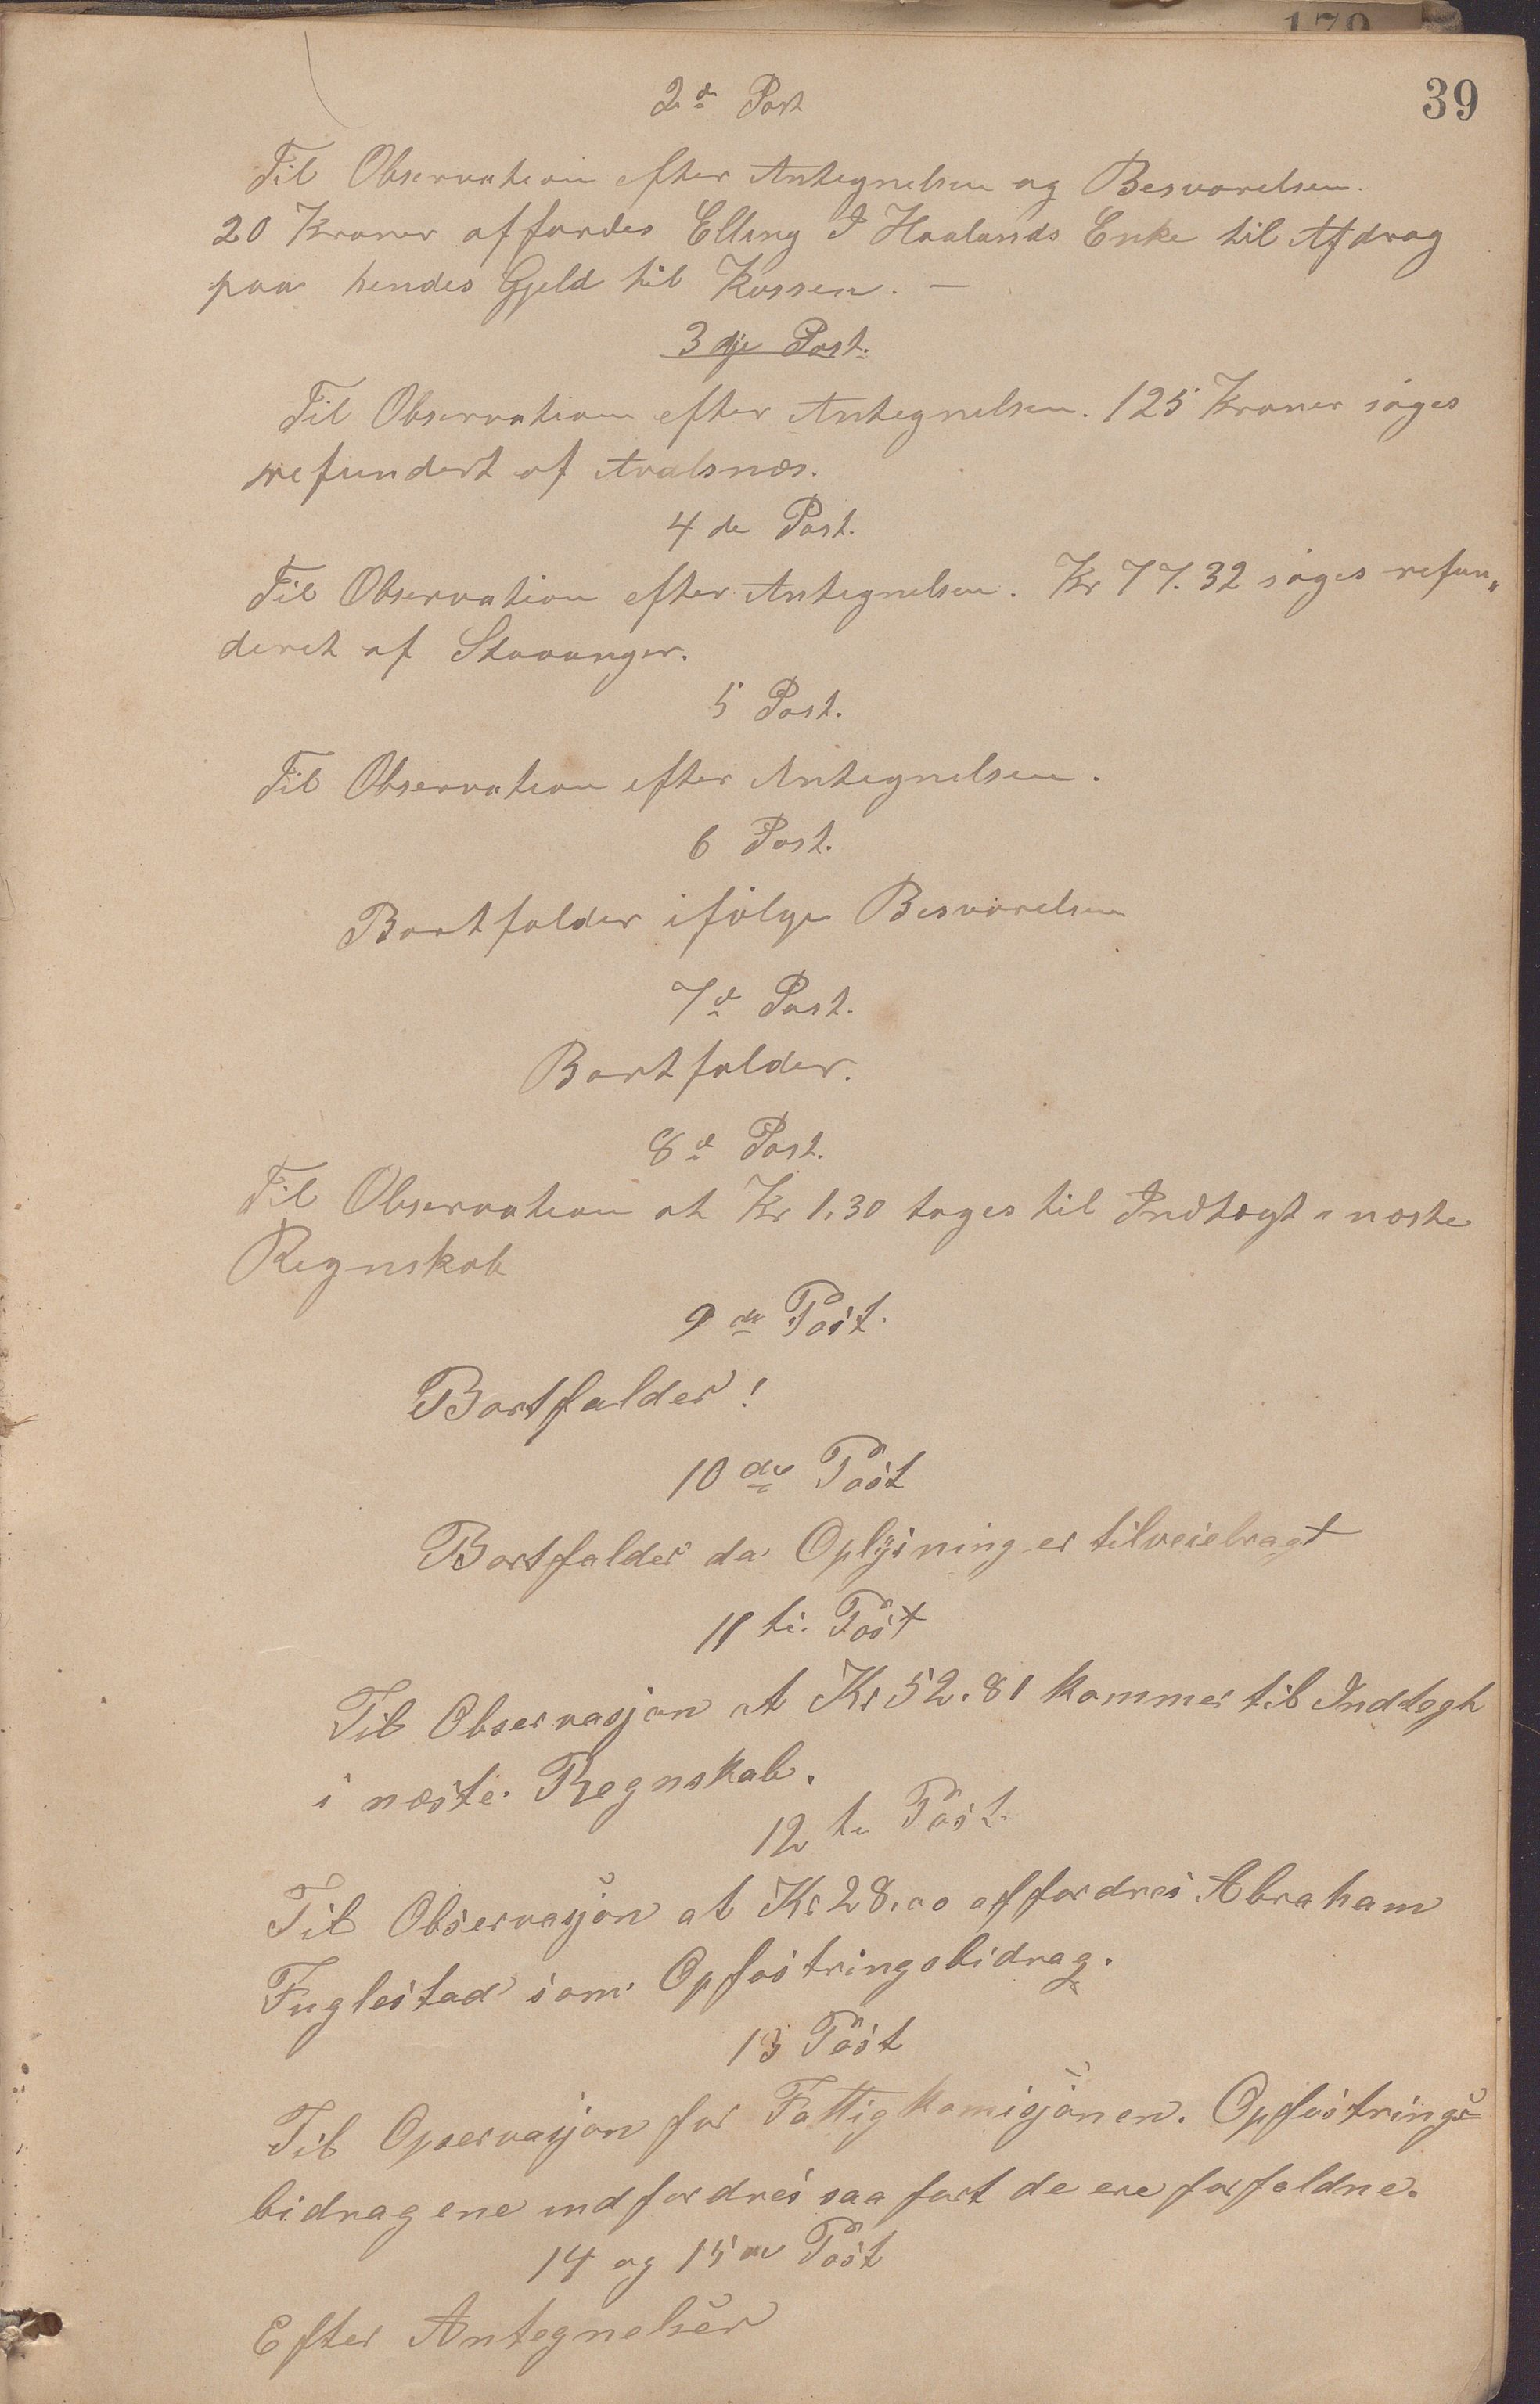 39
2de Post
Til Observation efter Antegnelsen og Besvarelsen.
20 Kroner affordes Elling I Haalands Enke til Afdrag
paa hendes Gjeld til Kassen. —
3 dje Post.
Til Observation efter Antegnelsen. 125 Kroner søges
refundert af Avalsnæs.
4 de Post.
Til Observation efter Antegnelsen. Kr 77.32 søges refun„
deret af Stavanger.
5 Post.
Til Observation efter Antegnelsen.
6 Post.
Bortfalder ifølge Besvarelsen
7d Post.
Bortfalder.
8d Post.
Til Observation at Kr 1,30 tages til Indtægt i næste
Regnskab
9 de Post.
Bortfalder!
10 de Post
Bortfalder da Oplysning er tilveiebragt
11 te Post
Til Observasjon at Kr 52.81 kommer til Indtegt
i næste Regnskab.
12 te Post.
Til Observasjon at Kr 28,00 affordres Abraham
Fuglestad som Opfostringsbidrag.
13 Post
Til Opservasjon for Fattigkomisjonen. Opfostrings-
bidragene indfordres saa fort de ere forfaldne.
14 og 15 de Post
Efter Antegnelsen